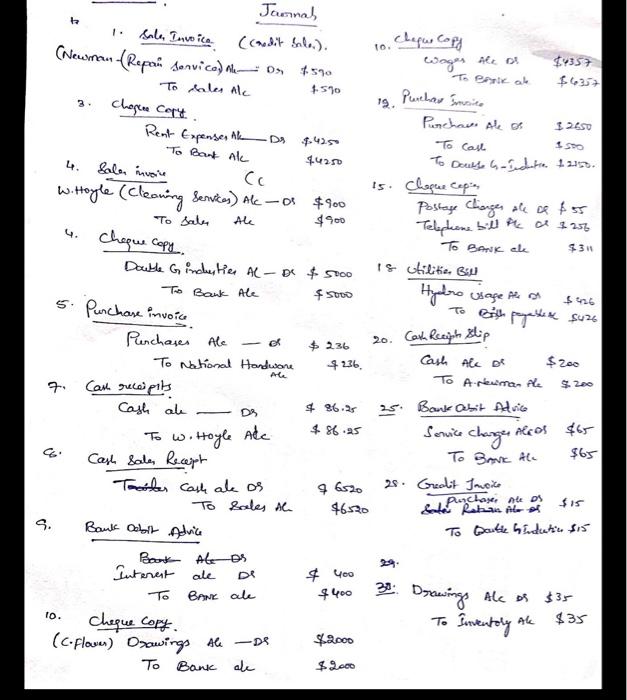 Journals
1. Sales Invoice (Credit Sales).
(Newman - (Repair Service) A/c — Dr $590
To Sales A/c $590
3. Cheque Copy
Rent Expenses A/c — Dr $4250
To Bank A/c $4250
4. Sales invoice
W. Hoyle (Cleaning Services) A/c — Dr $900
To Sales A/c $900
4. Cheque Copy
Double G industries A/c — Dr $5000
To Bank A/c $5000
5. Purchase invoice
Purchases A/c — Dr $236
To National Hardware A/c $236.
7. Cash receipts
Cash a/c — Dr $86.25
To W. Hoyle A/c $86.25
8. Cash Sales Receipt
Cash a/c Dr $6520
To Sales A/c $6520
9. Bank Debit Advice
Bank A/c Dr
Interest a/c Dr $400
To Bank a/c $400
10. Cheque Copy
(C. Flower) Drawings A/c — Dr $2000
To Bank a/c $2000
10. Cheque Copy
Wages A/c Dr $4357
To Bank a/c $4357
12. Purchase Invoice
Purchases A/c Dr $2650
To Cash $500
To Double G-Industries $2150.
15. Cheque Copy
Postage Charges a/c Dr $55
Telephone bill A/c Dr $256
To BANK a/c $311
18 Utilities Bill
Hydro usage A/c Dr $426
To Bills payable $426
20. Cash Receipts Slip
Cash A/c Dr $200
To A. Newman A/c $200
25. Bank Debit Advice
Service charges A/c Dr $65
To Bank A/c $65
28. Credit Invoice
Purchases A/c Dr $15
Sales Return A/c Dr
To Double G Industries $15
29.
30. Drawings A/c Dr $35
To Inventory A/c $35